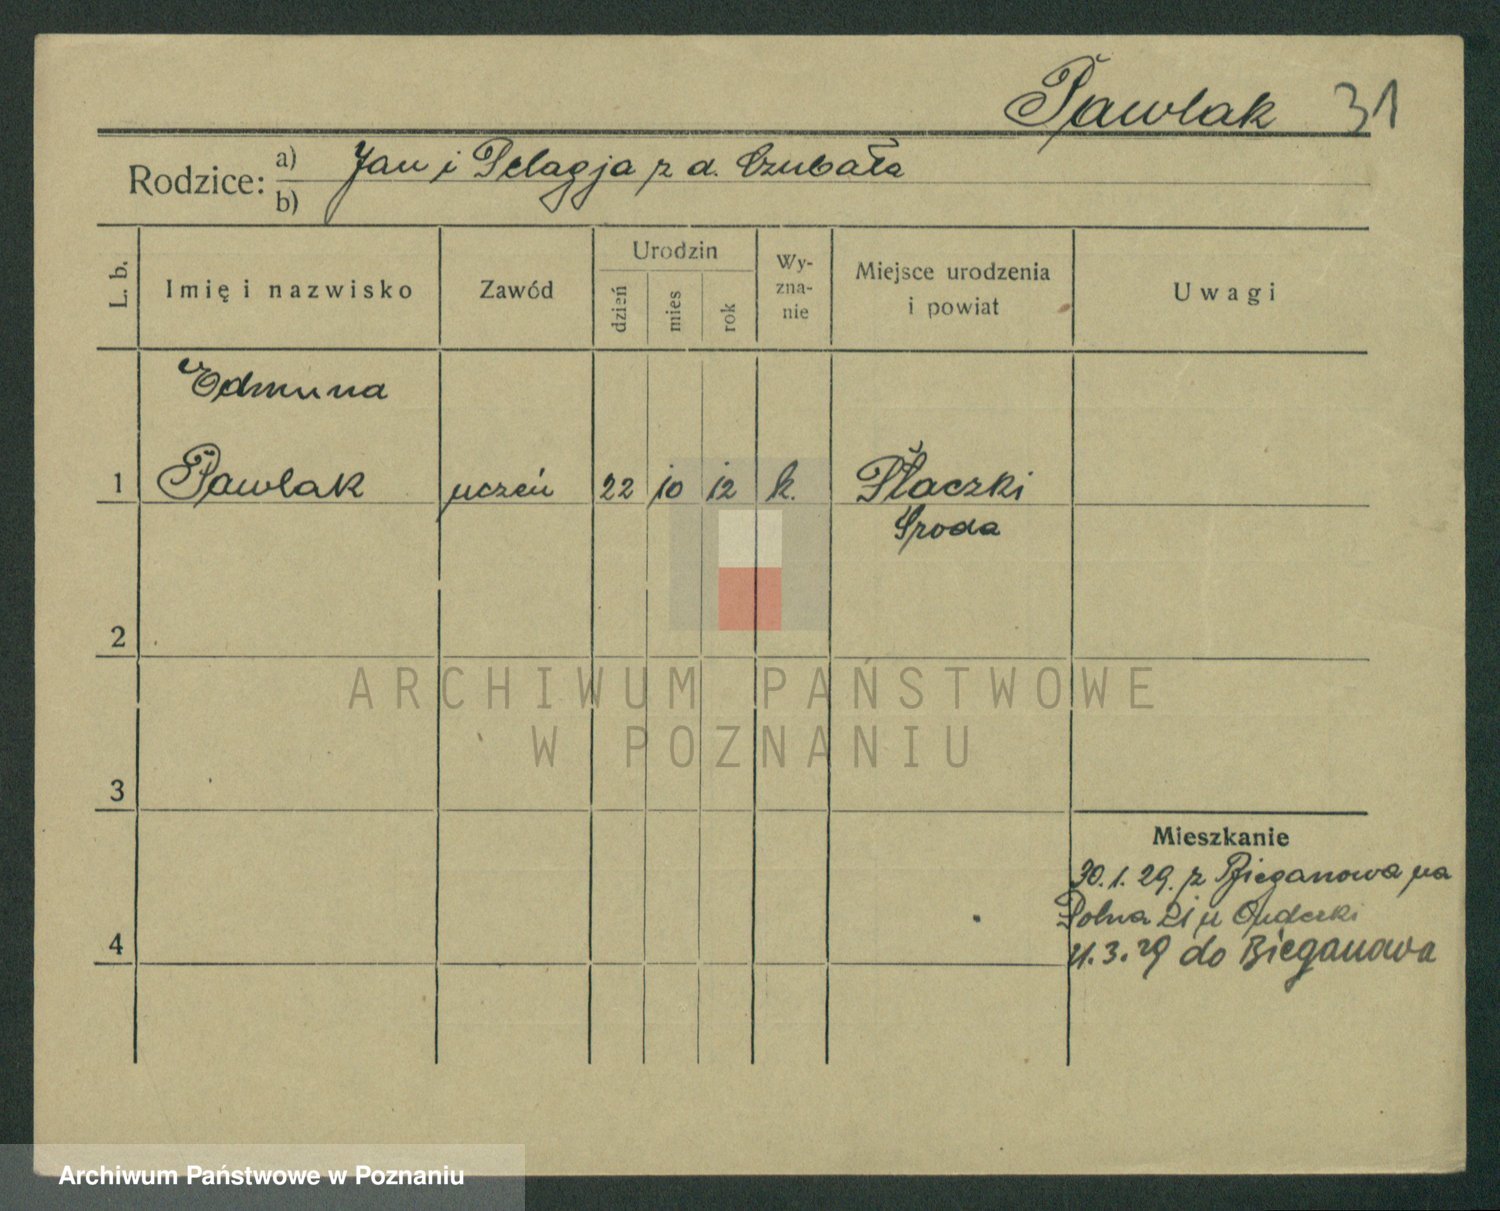 Pawlak 31
Rodzice: a) Jan i Pelagja z d. Czubała
b)
L. b.
Imię i nazwisko
Zawód
Urodzin
dzień
mies
rok
Wy-
zna-
nie
Miejsce urodzenia
i powiat
Uwagi
Edmund
1 Pawlak uczeń 22 10 12 k. Płaczki
Sroda
2
ARCHIWUM PAŃSTWOWE
W POZNANIU
3
Mieszkanie
30.1.29. z Bieganowa na
Polna 21 u
4
21.3.29 do Bieganowa
Archiwum Państwowe w Poznaniu